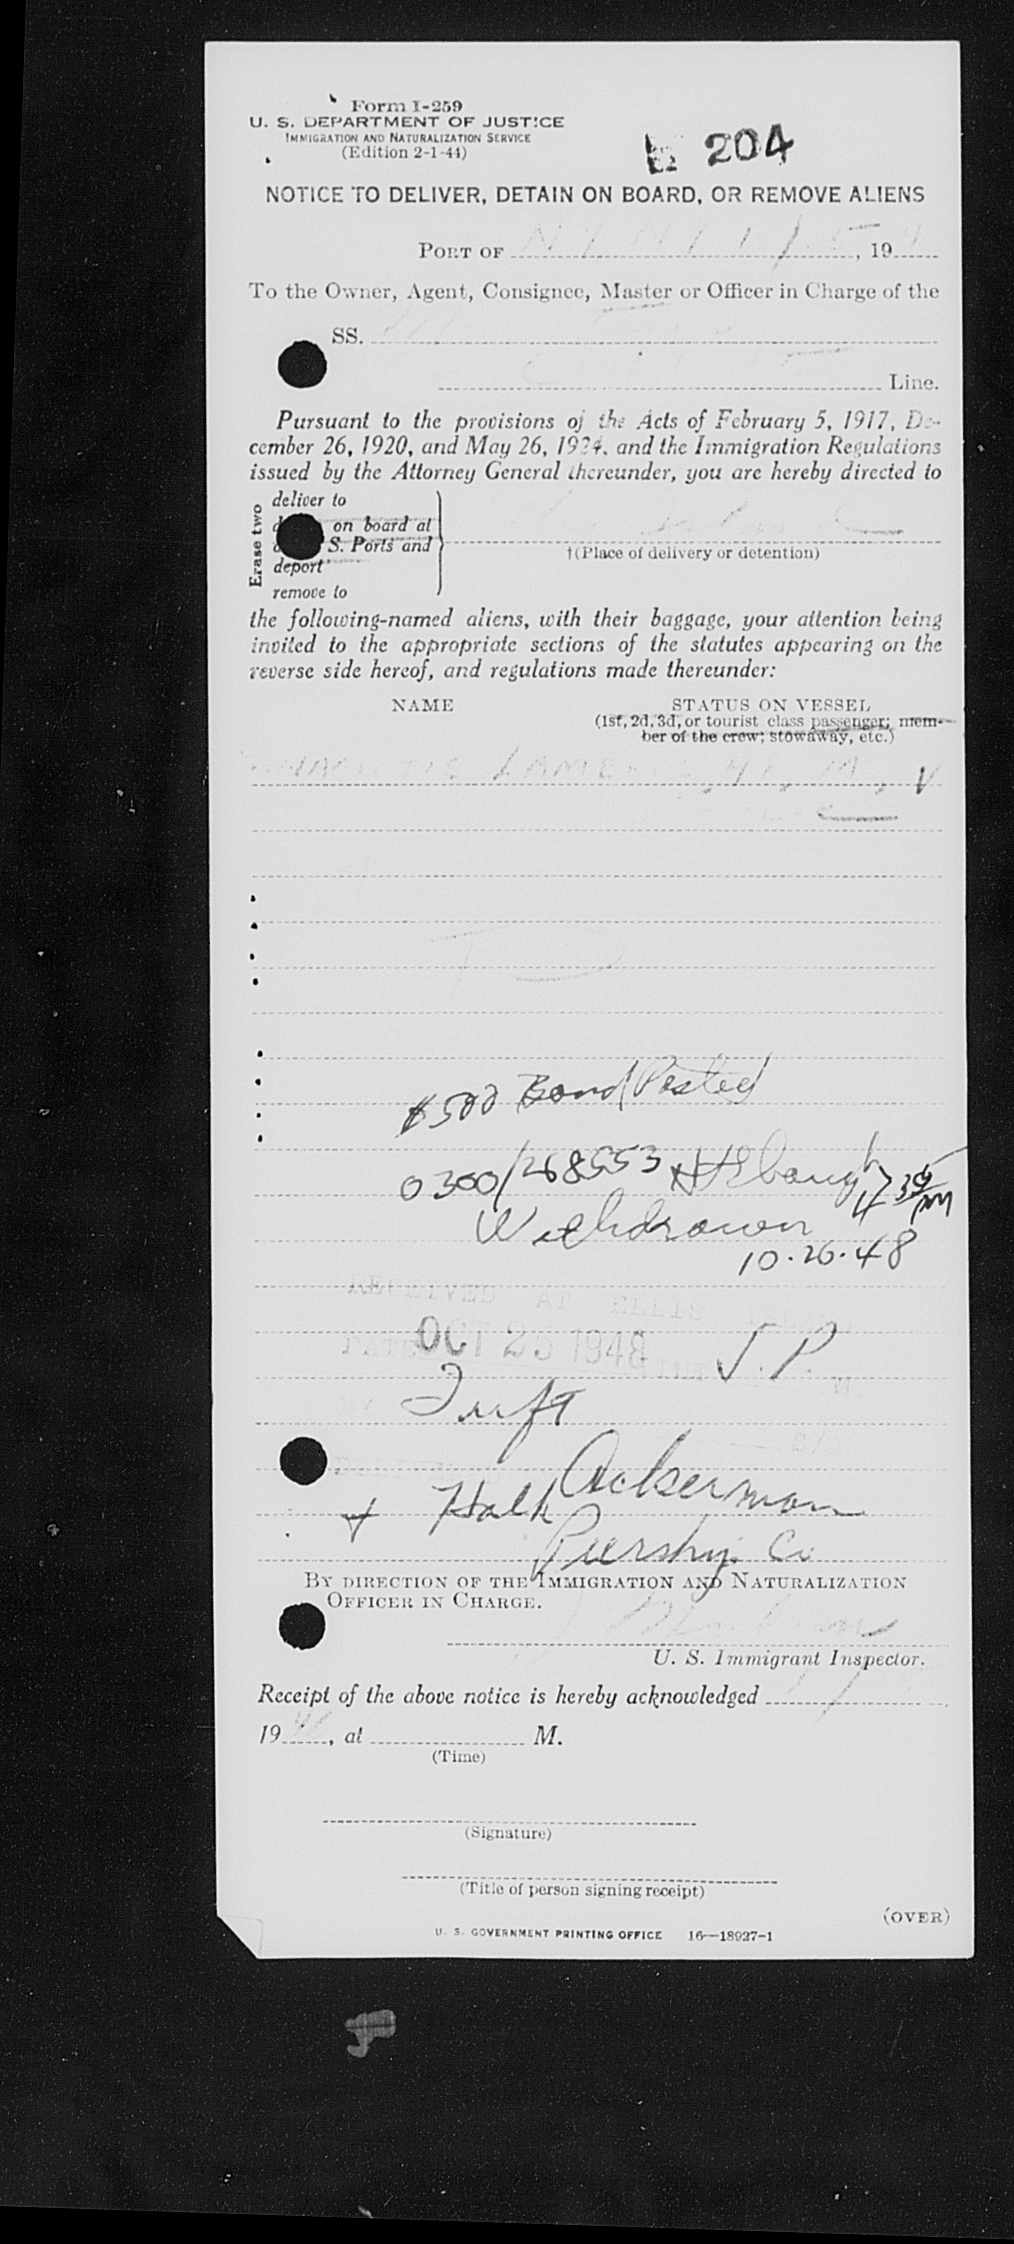 Form I-259
U. S. DEPARTMENT OF JUSTICE
IMMIGRATION AND NATURALIZATION SERVICE
(Edition 2-1-44)
204
NOTICE TO DELIVER, DETAIN ON BOARD, OR REMOVE ALIENS
PORT OF , 19
To the Owner, Agent, Consignee, Master or Officer in Charge of the
SS.
Line.
Pursuant to the provisions of the Acts of February 5, 1917, De-
cember 26, 1920, and May 26, 1924, and the Immigration Regulations
issued by the Attorney General thereunder, you are hereby directed to
Erase two
deliver to
on board at
S. Ports and
deport
remove to
†(Place of delivery or detention)
the following-named aliens, with their baggage, your attention being
invited to the appropriate sections of the statutes appearing on the
reverse side hereof, and regulations made thereunder:
NAME STATUS ON VESSEL
(1st, 2d, 3d, or tourist class passenger; mem-
ber of the crew; stowaway, etc.)
$500 Bond Posted
0300/268553
Withdrawn
10.26.48
RECEIVED AT ELLIS
OCT 25 1948 J. P.
Ackerman
+
BY DIRECTION OF THE IMMIGRATION AND NATURALIZATION
OFFICER IN CHARGE.
U. S. Immigrant Inspector.
Receipt of the above notice is hereby acknowledged
19 , at M.
(Time)
(Signature)
(Title of person signing receipt)
(OVER)
U. S. GOVERNMENT PRINTING OFFICE 16—18927-1